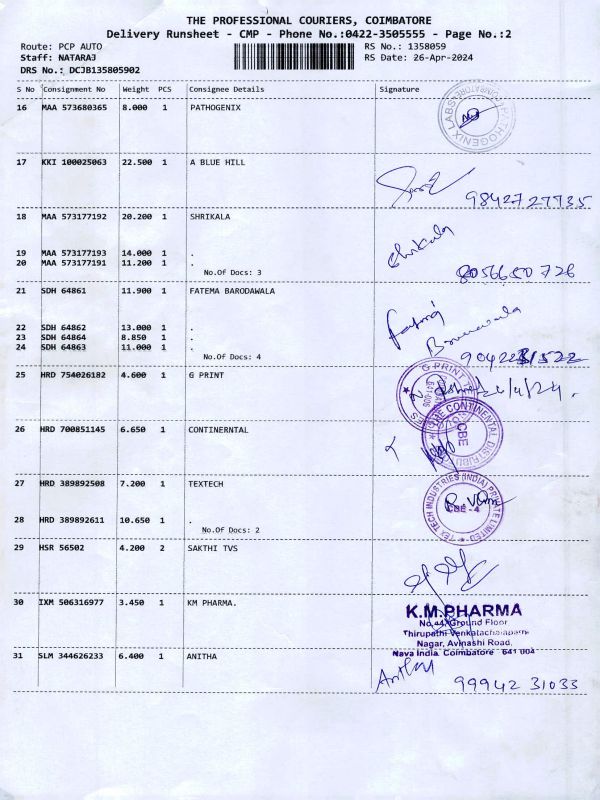 THE PROFESSIONAL COURIERS, COIMBATORE
Delivery Runsheet - CMP - Phone No.:0422-3505555 - Page No.:2
Route: PCP AUTO RS No.: 1358059
Staff: NATARAJ RS Date: 26-Apr-2024
DRS No.: DCJB135805902
S No Consignment No Weight PCS Consignee Details Signature
16 MAA 573680365 8.000 1 PATHOGENIX
PATHOGENIX LABS
17 KKI 100025063 22.500 1 A BLUE HILL
9842727735
18 MAA 573177192 20.200 1 SHRIKALA
Shrikala
19 MAA 573177193 14.000 1 .
20 MAA 573177191 11.200 1 .
No.Of Docs: 3
8056650726
21 SDH 64861 11.900 1 FATEMA BARODAWALA
22 SDH 64862 13.000 1 .
23 SDH 64864 8.850 1 .
24 SDH 64863 11.000 1 .
No.Of Docs: 4
25 HRD 754026182 4.600 1 G PRINT
G PRINT
641-006
26/4/24.
26 HRD 700851145 6.650 1 CONTINERNTAL
THE CONTINENTAL DISTRIBUTORS
CBE
27 HRD 389892508 7.200 1 TEXTECH
TEX TECH INDUSTRIES (INDIA) PRIVATE LIMITED
CBE - 4
28 HRD 389892611 10.650 1 .
No.Of Docs: 2
29 HSR 56502 4.200 2 SAKTHI TVS
30 IXM 506316977 3.450 1 KM PHARMA.
K.M.PHARMA
No.44, Ground Floor
Thirupathi Venkatachalapathi
Nagar, Avinashi Road,
Nava India. Coimbatore - 641 004
31 SLM 344626233 6.400 1 ANITHA
99942 31033